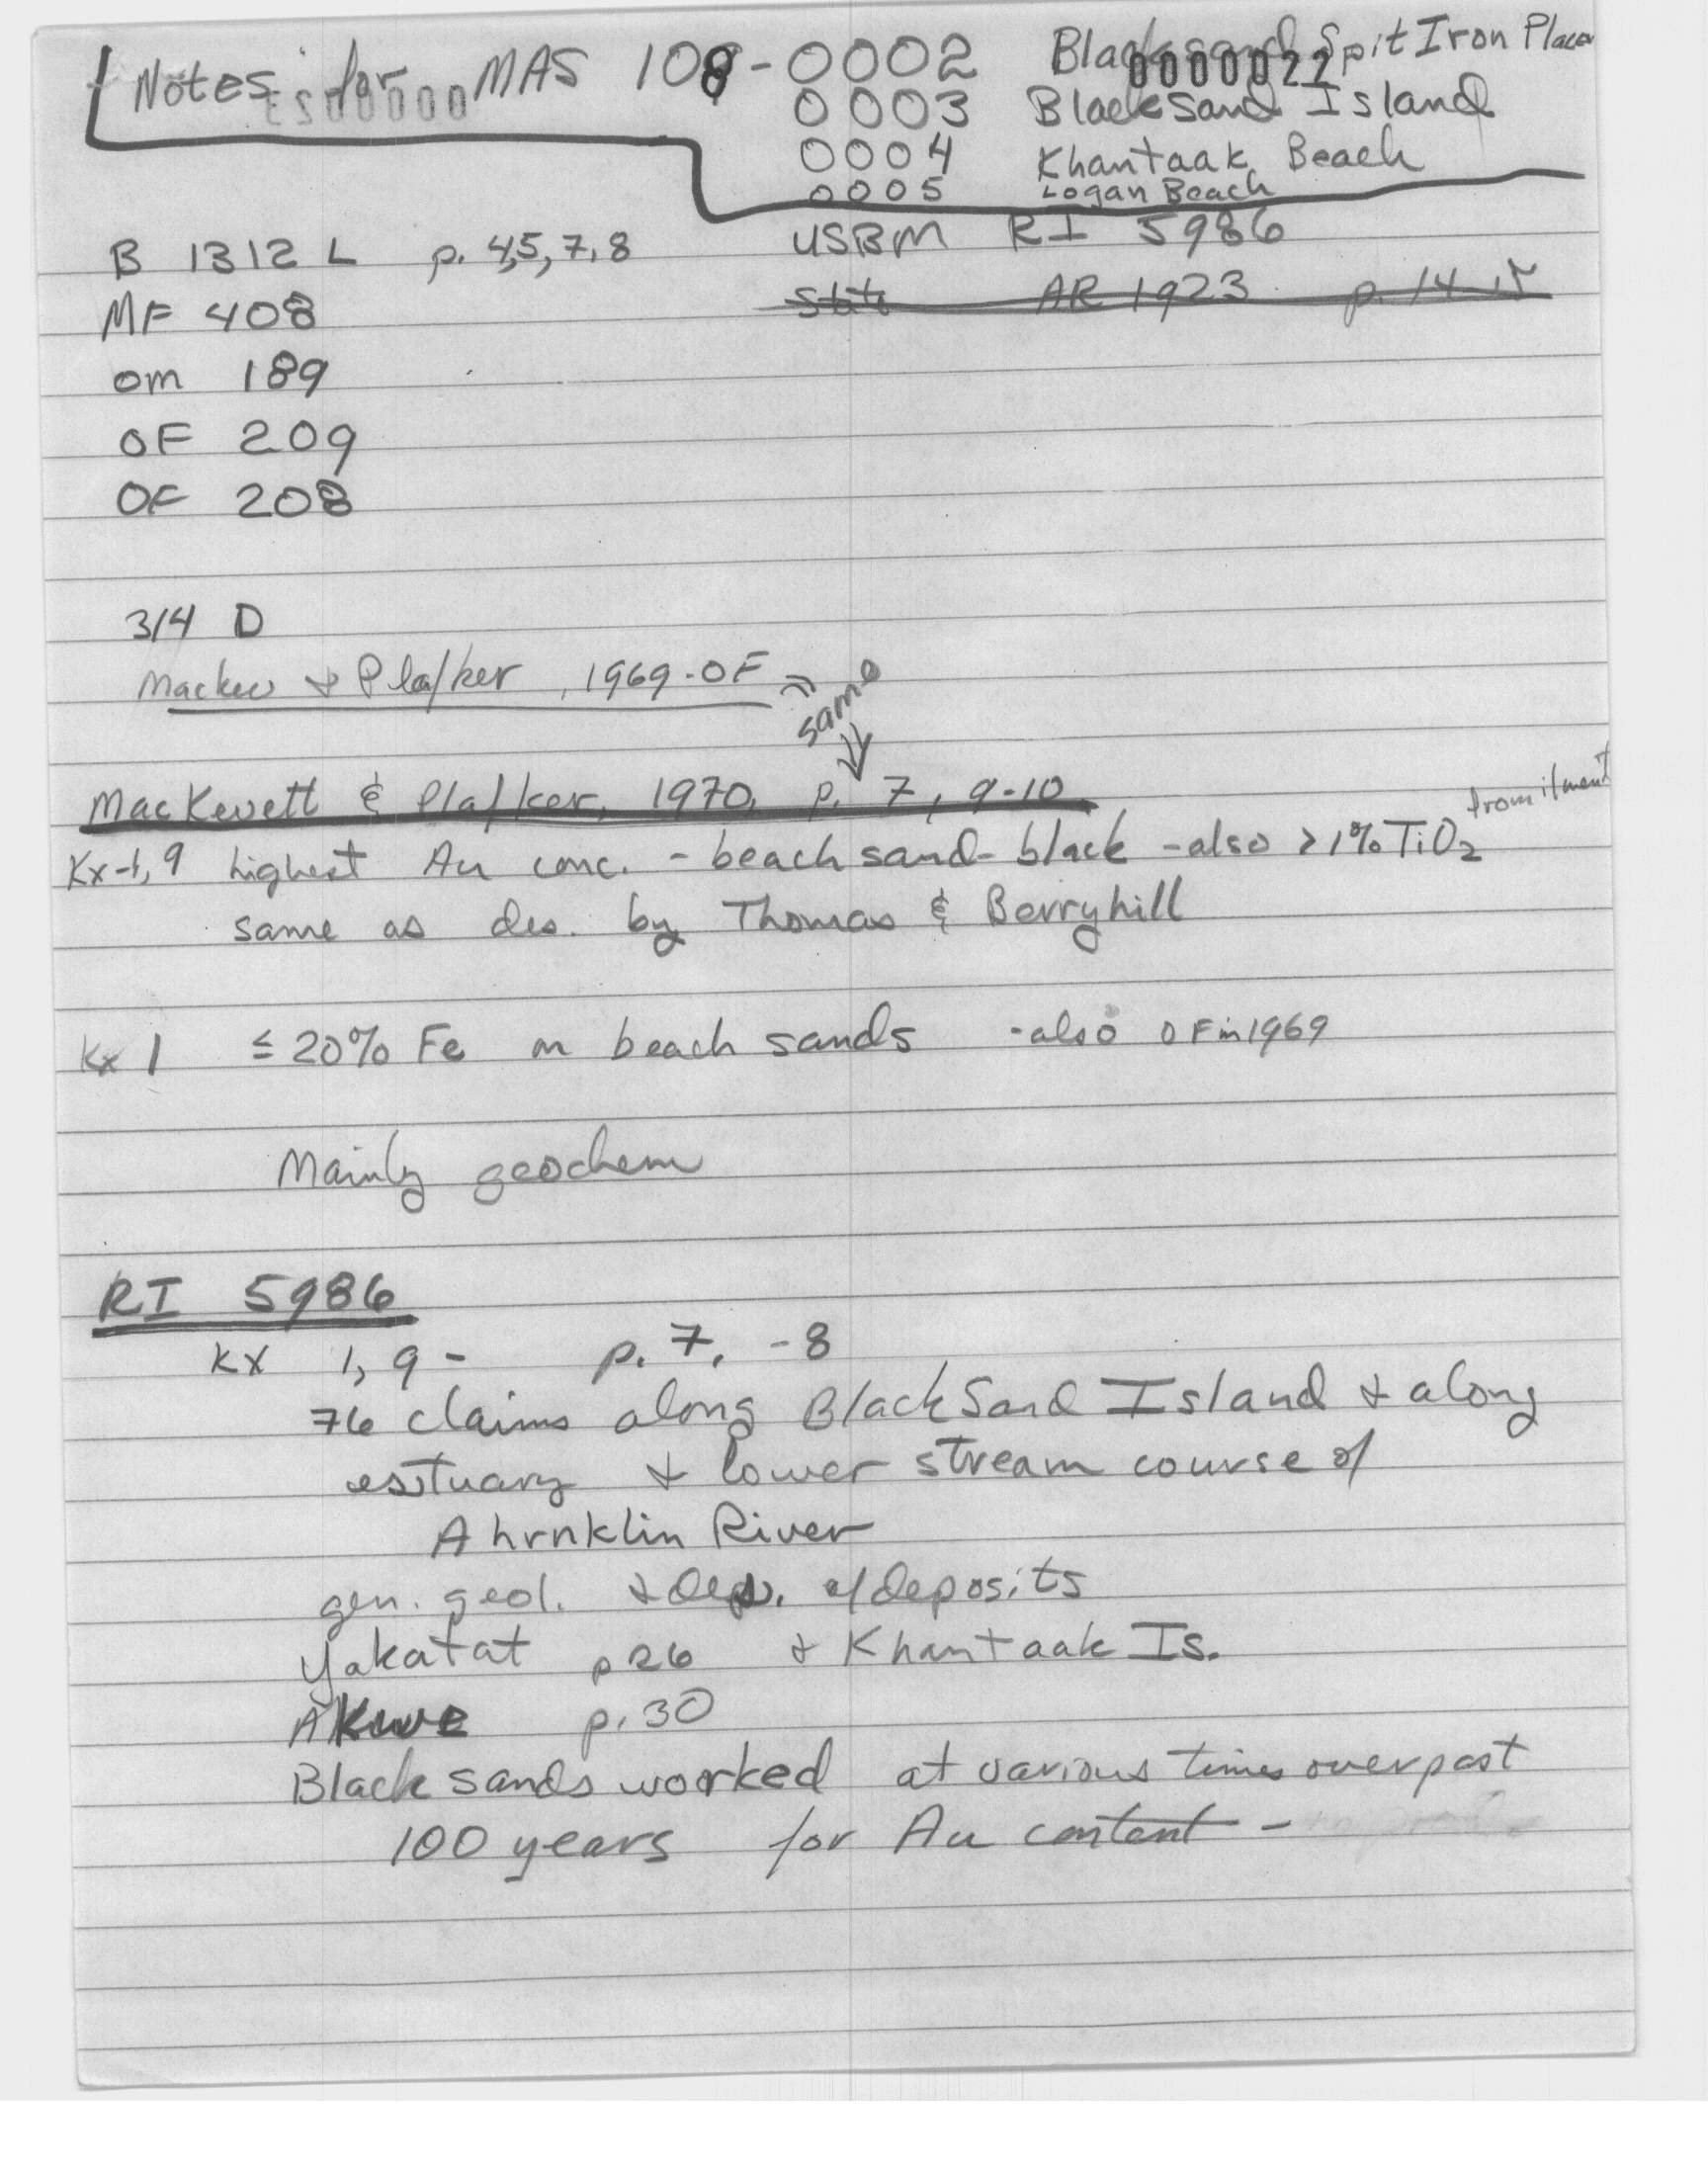 Notes for MAS 108-0002 Blacksand Spit Iron Placer
0000022
0003 BlackSand Island
0004 Khantaak Beach
0005 Logan Beach
B 1312 L p. 4,5, 7, 8 USBM RI 5986
MF 408 State AR 1923 p. 14
om 189
OF 209
OF 208
3/4 D
Mackev & Plafker, 1969-OF
same
MacKevett & Plafker, 1970, p. 7, 9-10
from ilment
Kx-1, 9 highest Au conc. - beach sand- black - also > 1% TiO2
same as des. by Thomas & Berryhill
Kx 1 ≤ 20% Fe in beach sands - also OF in 1969
Mainly geochem
RI 5986
KX 1, 9 - p. 7, -8
76 claims along BlackSand Island & along
estuary & lower stream course of
Ahrnklin River
gen. geol. & des. of deposits
Yakatat p 26 & Khantaak Is.
AKwe p. 30
Black sands worked at various times over past
100 years for Au content -